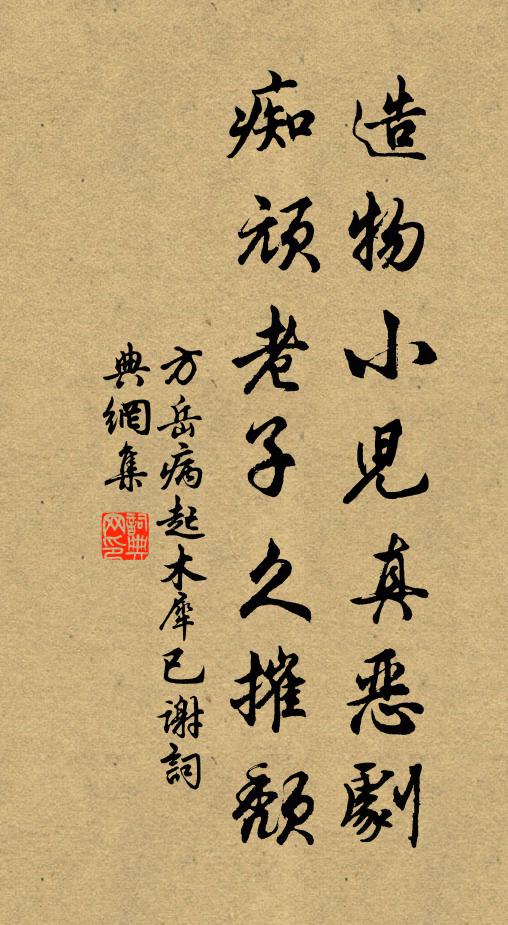 造物小児真惡劇
痴頑老子久摧頹
方岳病起木犀已謝詞
典網集
詞典
网印